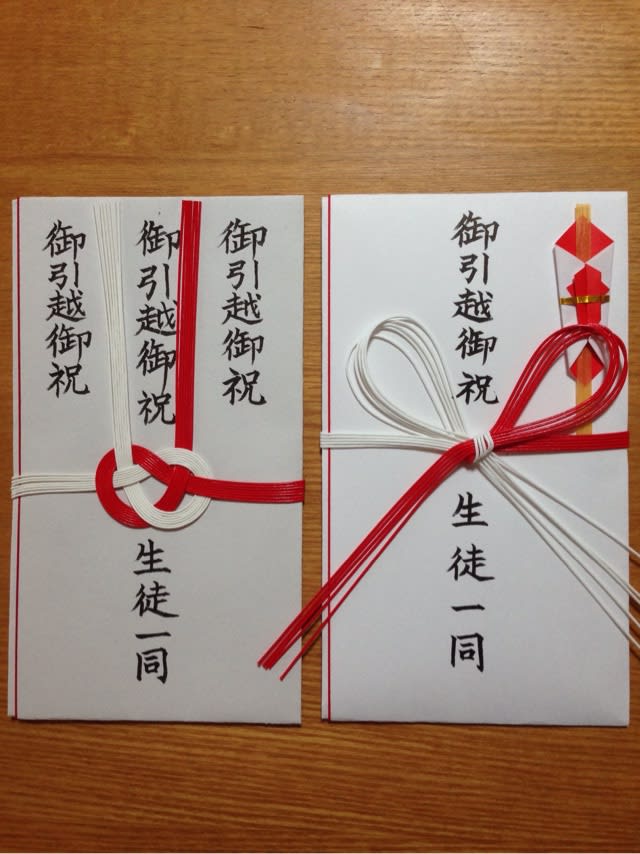 御引越御祝
御引越御祝
御引越御祝
生徒一同
御引越御祝
生徒一同